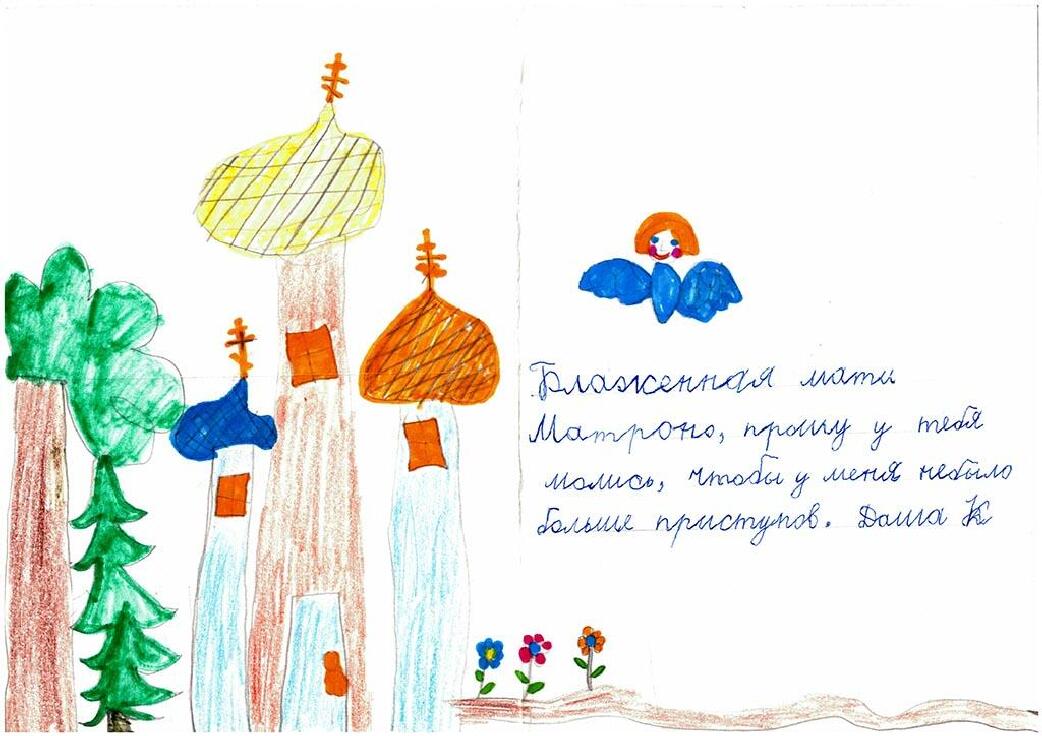 Блаженная мати
Матроно, прошу у тебя
молись, чтобы у меня небыло
больше приступов. Даша К